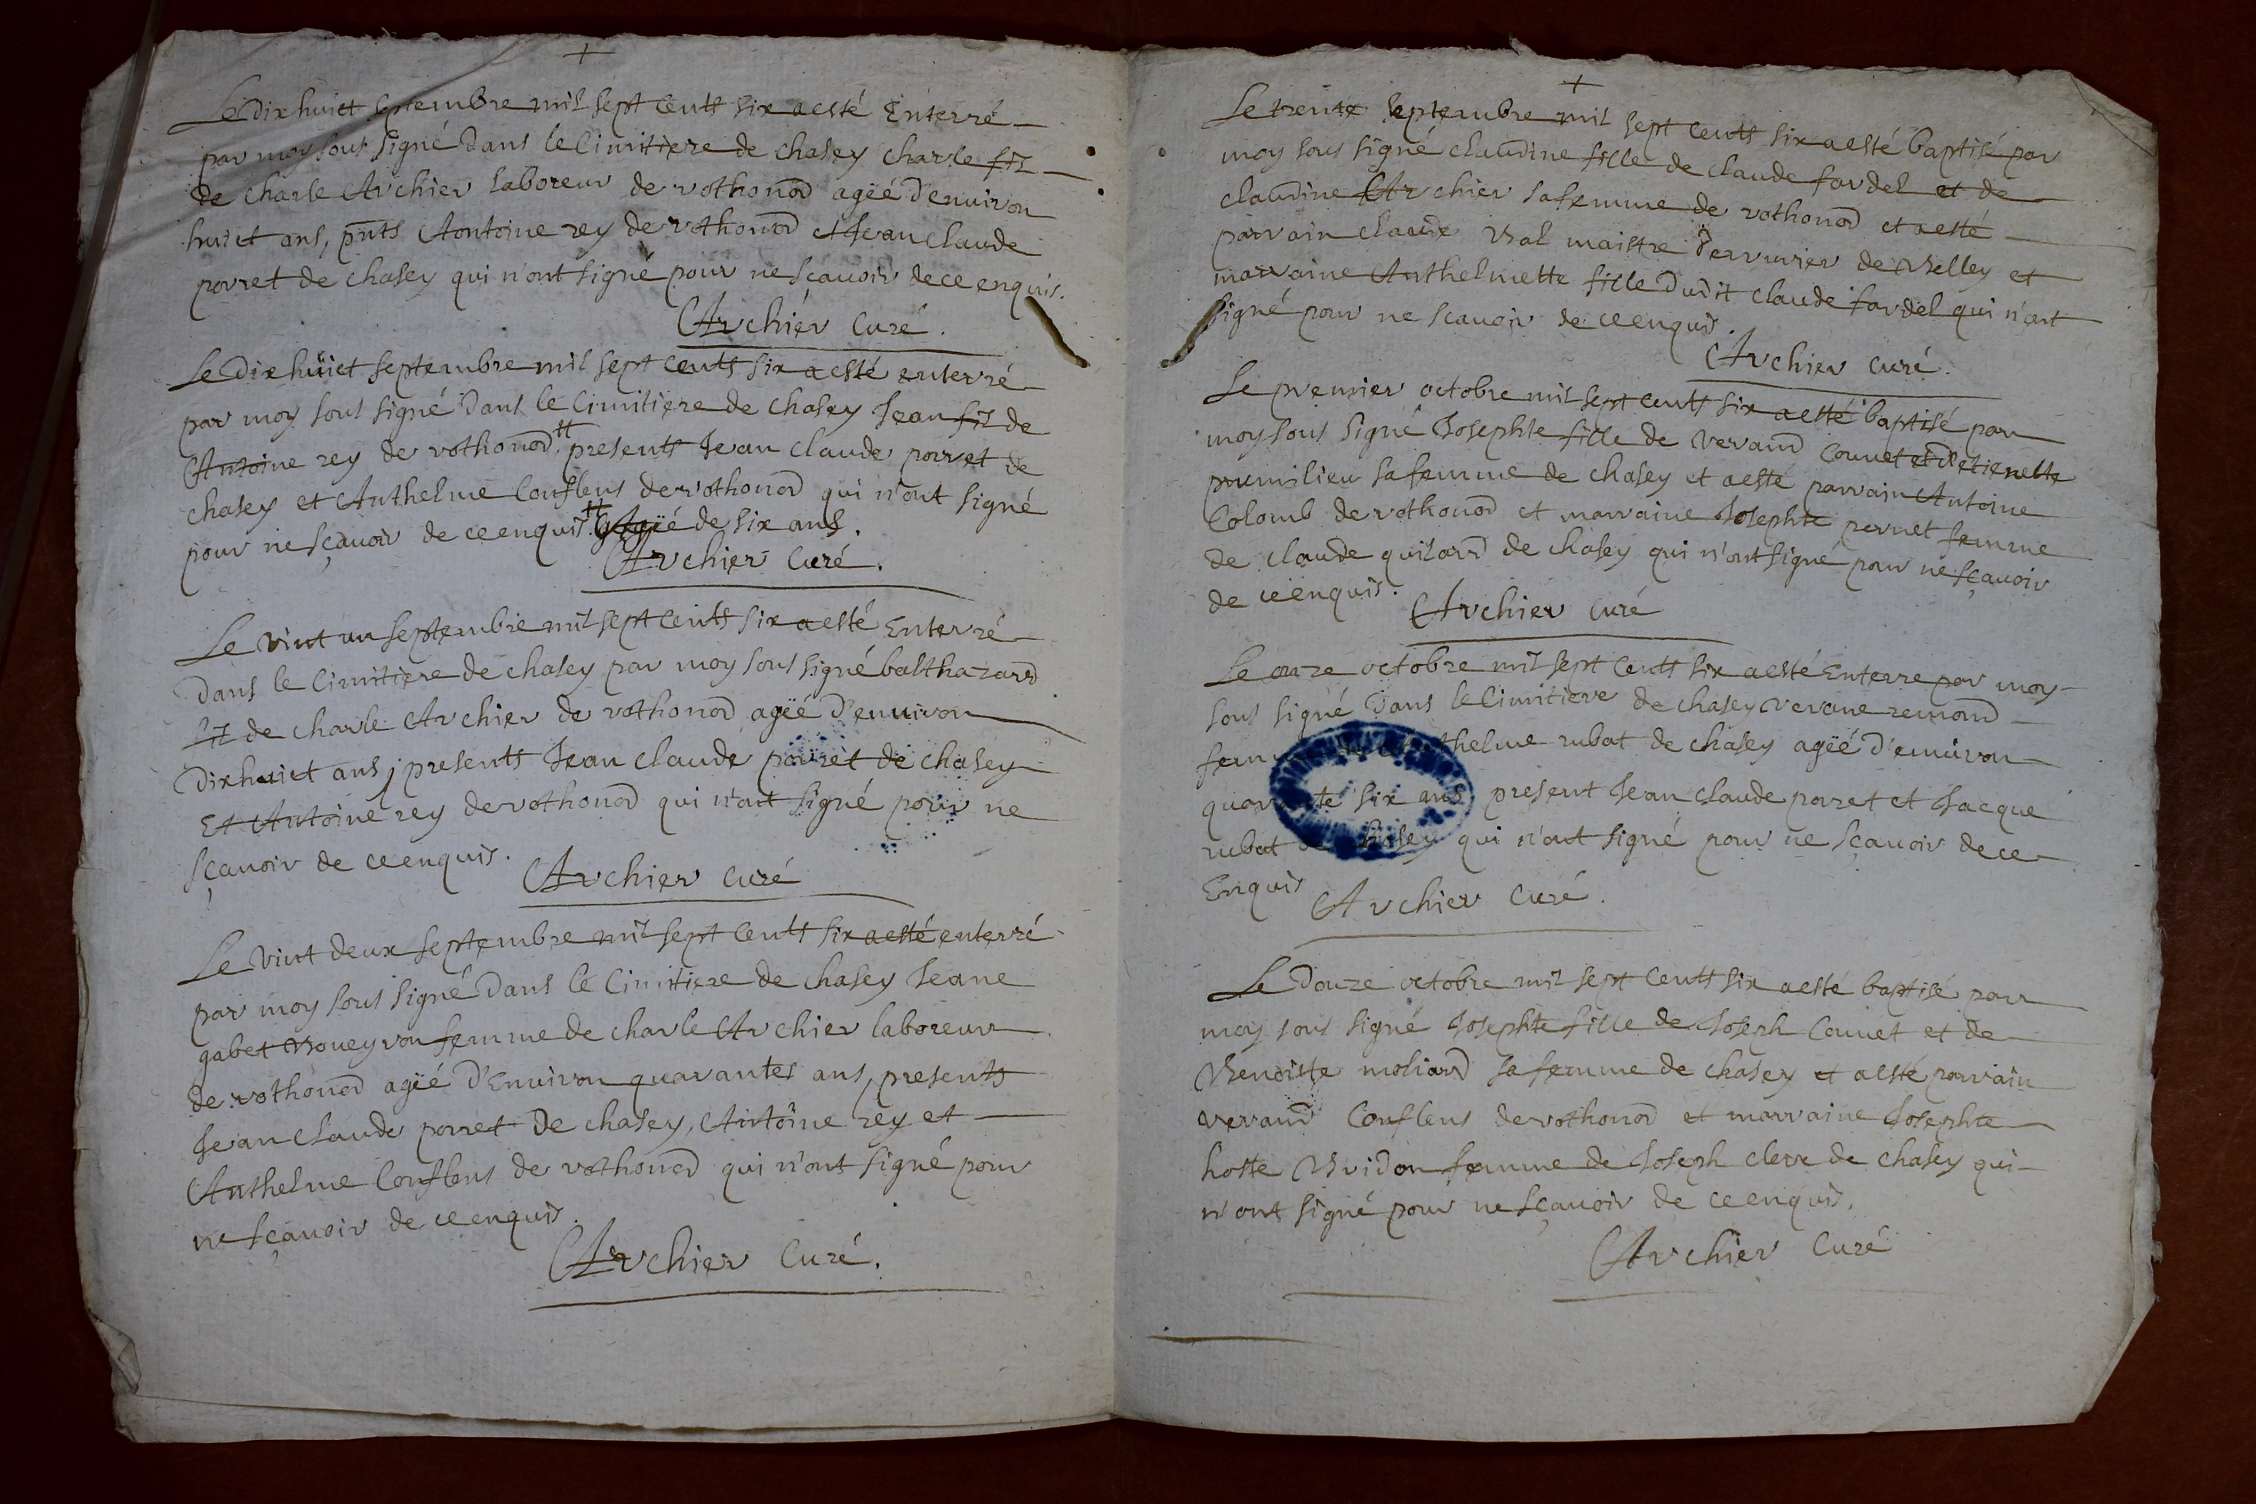 +
Le dixhuict septembre mil sept cents six a esté Enterré
par moy sous signé dans le Cimitiere de chasey charle fils
de charle Archier laboreur de rothonod ageé d'environ
huict ans, pnts Antoine rey de rothonod et Jean claude
porret de chasey qui n'ont signé pour ne sçavoir de ce enquis.
Archier Curé.
Le dixhuict septembre mil sept cents six a esté enterré
par moy sous signé dans le Cimitiere de chasey Jean fils de
Antoine rey de rothonod, presents Jean claude porret de
chasey et Anthelme Conflens de rothonod qui n'ont signé
pour ne sçavoir de ce enquis. ageé de six ans.
Archier Curé.
Le vint un septembre mil sept cents six a esté Enterré
dans le Cimitiere de chasey par moy sous signé balthazard
fils de charle Archier de rothonod ageé d'environ
dixhuict ans, presents Jean claude porret de chasey
Et Antoine rey de rothonod qui n'ont signé pour ne
sçavoir de ce enquis.
Archier Curé
Le vint deux septembre mil sept cents six a esté enterré
par moy sous signé dans le Cimitiere de chasey Jeane
gabet femme de charle Archier laboreur
de rothonod ageé d'Environ quarantes ans, presents
Jean claude porret de chasey, Antoine rey et
Anthelme Conflens de rothonod qui n'ont signé pour
ne sçavoir de ce enquis.
Archier Curé.
+
Le trente septembre mil sept cents six a esté baptisé par
moy sous signé claudine fille de claude fardel et de
claudine Archier sa femme de rothonod et a esté
parrain claude maistre de Belley et
marraine Anthelmette fille dudit claude fardel qui n'ont
signé pour ne scavoir de ce enquis.
Archier curé.
Le premier octobre mil sept cents six a esté baptisé par
moy sous signé Josephte fille de verand Cornet et d'etienette
sa femme de chasey et a esté parrain Antoine
Colomb de rothonod et marraine Josephte pernet femme
de claude guilard de chasey qui n'ont signé pour ne sçavoir
de ce enquis.
Archier curé
Le onze octobre mil sept cents six a esté Enterre par moy
sous signé dans le Cimitiere de chasey verane remond
rubat de chasey ageé d'environ
six ans present Jean claude porret et Jacque
rubat qui n'ont signé pour ne sçavoir de ce
Enquis
Archier Curé.
Le douze octobre mil sept cents six a esté baptisé par
moy sous signé Josephte fille de Joseph Cornet et de
Benoiste moliard sa femme de chasey et a esté parrain
verand Conflens de rothonod et marraine Josephte
hoste Bridon femme de Joseph clere de chasey qui
n'ont signé pour ne sçavoir de ce enquis.
Archier Curé